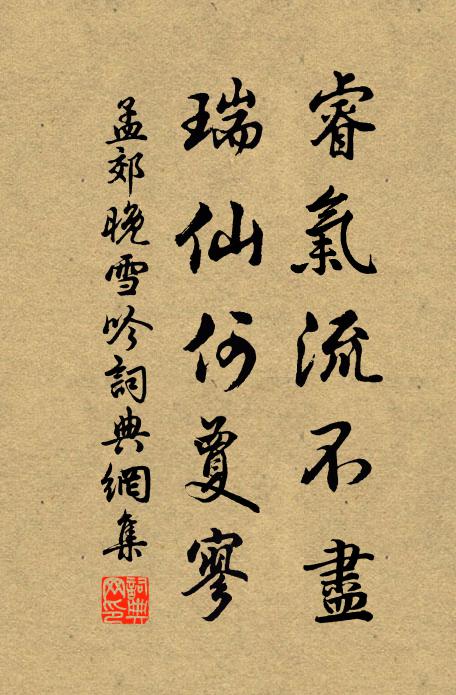 睿氣流不盡
瑞仙何夐寥
孟郊晚雪吟詞典網集
詞典网印